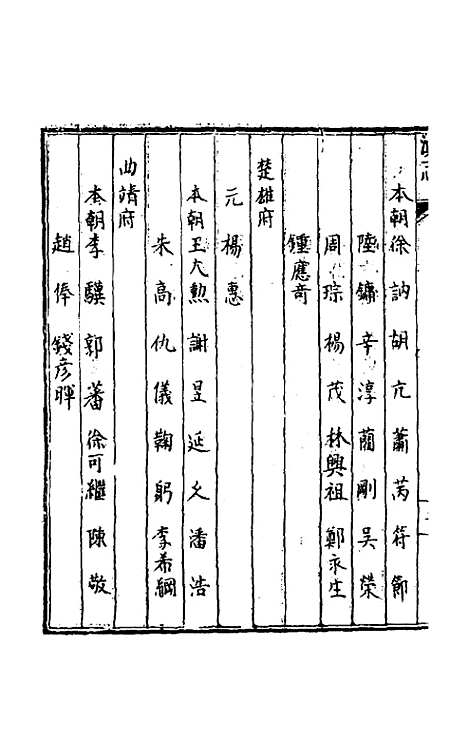 滇志
本朝徐訥胡亢蕭芮符節
陸鏞辛淳藺剛吳榮
周琮楊茂林興祖鄭永生
鍾應奇
楚雄府
元楊惠
本朝王大勲謝昱延乂潘浩
朱高仇儀鞠躬李希綱
曲靖府
本朝李驥郭蕃徐可繼陳敬
趙俸錢彥暉